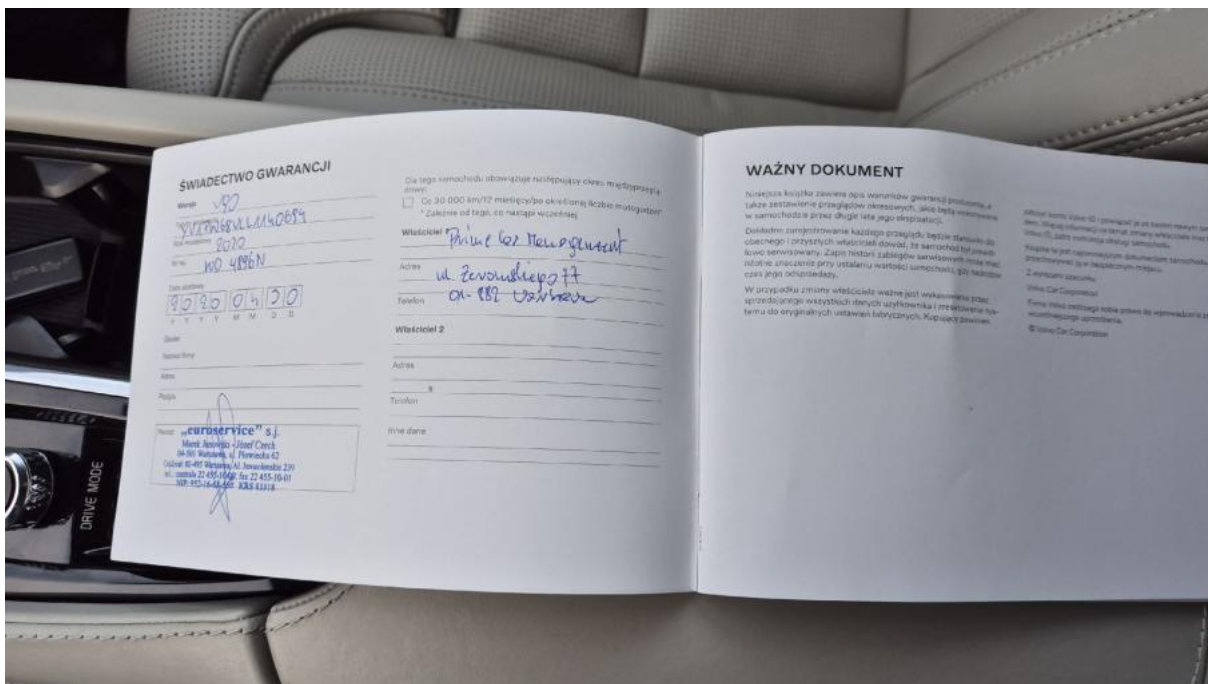 ŚWIADECTWO GWARANCJI
Wersja V90
Rok modelowy 2020
Nr rej. WD 4896N
Data dostawy
2020 04 30
Y Y Y Y M M D D
Dealer
Nazwa firmy
Adres
Podpis
„euroservice” s.j.
Józef Czech
04-501 Warszawa, ul. Płowiecka 62
Oddział: 02-495 Warszawa, Al. Jerozolimskie 239
fax 22 455-10-01
KRS 83318
Dla tego samochodu obowiązuje następujący okres międzyprzeglą-
dowy:
Co 30 000 km/12 miesięcy/po określonej liczbie motogodzin*
* Zależnie od tego, co nastąpi wcześniej
Właściciel 1 Prime Car Management
Adres ul. Żeromskiego 77
01-882 Warszawa
Telefon
Właściciel 2
Adres
Telefon
Inne dane
WAŻNY DOKUMENT
Niniejsza książka zawiera opis warunków gwarancji producenta, a
także zestawienie przeglądów okresowych, jakie będą wykonywane
w samochodzie przez długie lata jego eksploatacji.
Dokładne zarejestrowanie każdego przeglądu będzie stanowić dla
obecnego i przyszłych właścicieli dowód, że samochód był prawid-
łowo serwisowany. Zapis historii zabiegów serwisowych może mieć
istotne znaczenie przy ustalaniu wartości samochodu, gdy nadejdzie
czas jego odsprzedaży.
W przypadku zmiany właściciela ważne jest wykasowanie przez
sprzedającego wszystkich danych użytkownika i zresetowanie sys-
temu do oryginalnych ustawień fabrycznych. Kupujący powinien
założyć konto Volvo ID i powiązać je ze swoim nowym
Volvo ID, zanim
Książka ta jest najważniejszym dokumentem samochodu
przechowywać ją w bezpiecznym miejscu.
Z wyrazami szacunku,
Volvo Car Corporation
Firma Volvo zastrzega sobie prawo do wprowadzania
wcześniejszego uprzedzenia.
© Volvo Car Corporation
DRIVE MODE